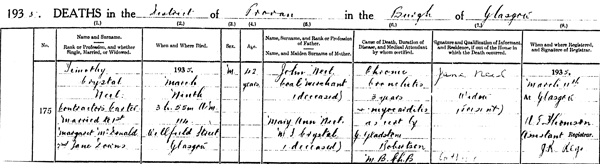 1935. DEATHS in the District of Provan in the Burgh of Glasgow
(1.) (2.) (3.) (4.) (5.) (6.) (7.) (8.)
No. Name and Surname. Rank or Profession, and whether Single, Married, or Widowed.
When and Where Died.
Sex.
Age.
Name, Surname, and Rank or Profession of Father. Name, and Maiden Surname of Mother.
Cause of Death, Duration of Disease, and Medical Attendant by whom certified.
Signature and Qualification of Informant, and Residence, if out of the House in which the Death occurred.
When and where Registered, and Signature of Registrar.
175
Timothy
Crystal
Neil
Contractor's Carter
Married 1st
Margaret McDonald
2nd Jane
1935,
March
Ninth
3h. 55m A.M.
114
Wellfield Street
Glasgow
M.
years
John Neil
Coal Merchant
(deceased)
Mary Ann Neil
M.S. Crystal
(deceased)
Chronic
bronchitis
3 years
myocarditis
as cert by
G. Gladstone
Robertson
M.B. Ch.B
Jane
Widow
(Present)
1935,
March 11th
At Glasgow
Thomson
Assistant Registrar.